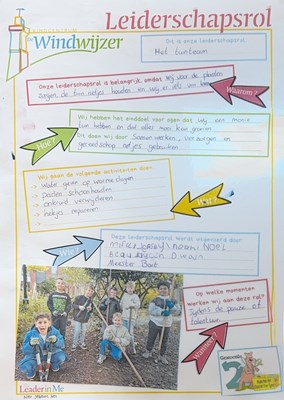 Leiderschapsrol
KINDCENTRUM
Windwijzer
Dit is onze leiderschapsrol:
Het tuinteam
Onze leiderschapsrol is belangrijk, omdat wij voor de planten
zorgen, de tuin netjes houden en wij er iets van
Waarom?
Wij hebben het einddoel voor ogen dat wij een mooie
tuin hebben en dat alles mooi kan groeien.
Dit doen wij door Samen werken, verzorgen en
gereedschap netjes gebruiken
Hoe?
Wij gaan de volgende activiteiten doen:
-> Water geven op warme dagen
-> paden schoonhouden
-> onkruid verwijderen
-> hekjes repareren
Wat?
Deze leiderschapsrol wordt uitgevoerd door:
Noël
Meester Bart
Wie?
Op welke momenten
werken wij aan deze rol?
Tijdens de pauze of
Wanneer?
Gewoonte
2
Leader in Me